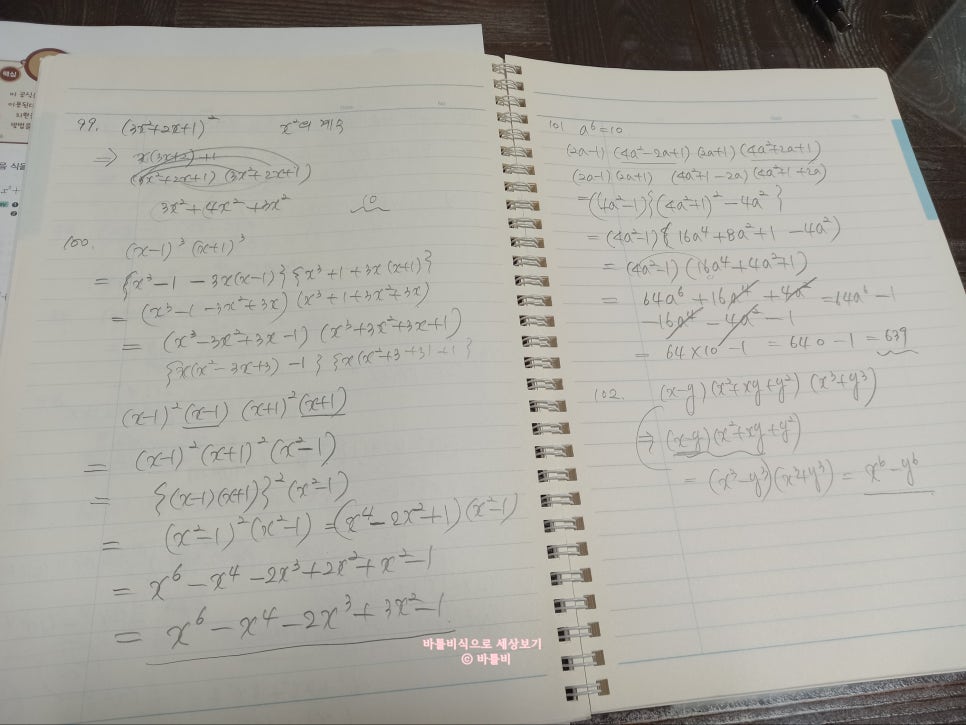 핵심
이 공식
99. (3x²+2x+1)² x²의 계수
⇒ x(3x+2)+1
(3x²+2x+1) (3x²+2x+1)
3x²+4x²+3x² 10
100. (x-1)³ (x+1)³
= {x³-1 -3x(x-1)} {x³+1+3x(x+1)}
= (x³-1-3x²+3x) (x³+1+3x²+3x)
= (x³-3x²+3x-1) (x³+3x²+3x+1)
{x(x²-3x+3)-1} {x(x²+3+3)+1}
(x-1)²(x-1) (x+1)²(x+1)
= (x-1)²(x+1)²(x²-1)
= {(x-1)(x+1)}²(x²-1)
= (x²-1)²(x²-1) = (x⁴-2x²+1)(x²-1)
= x⁶-x⁴-2x³+2x²+x²-1
= x⁶-x⁴-2x³+3x²-1
101 a⁶=10
(2a-1) (4a²-2a+1) (2a+1) (4a²+2a+1)
(2a-1)(2a+1) (4a²+1-2a) (4a²+1+2a)
=(4a²-1){(4a²+1)²-4a²}
= (4a²-1){16a⁴+8a²+1 -4a²)
= (4a²-1) (16a⁴+4a²+1)
= 64a⁶+16a⁴+4a² = 64a⁶-1
-16a⁴-4a²-1
= 64×10-1 = 640-1 = 639
102. (x-y)(x²+xy+y²) (x³+y³)
⇒ (x-y)(x²+xy+y²)
= (x³-y³)(x³+y³) = x⁶-y⁶
바틀비식으로 세상보기
© 바틀비